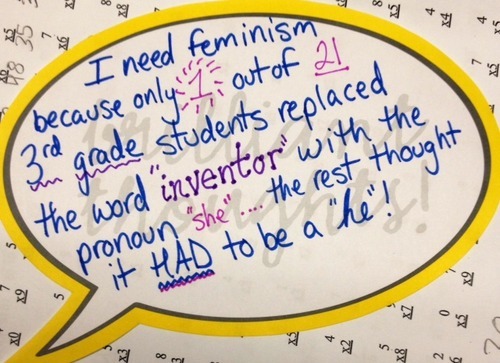 I need feminism
because only 1 out of 21
3rd grade students replaced
the word "inventor" with the
pronoun "she".... the rest thought
it HAD to be a "he"!
brilliant
thoughts!